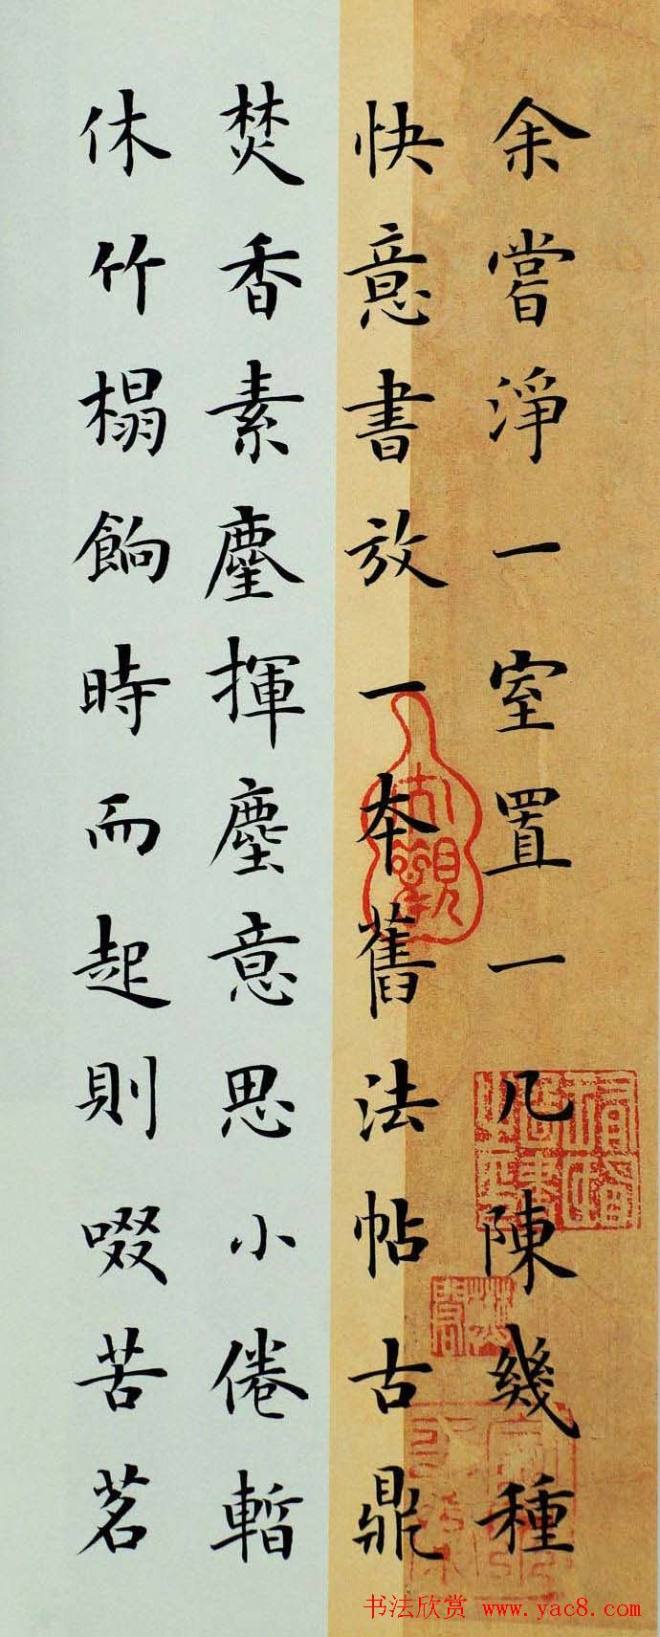 余嘗淨一室置一几陳幾種
快意書放一本舊法帖古鼎
焚香素麈揮塵意思小倦暫
休竹榻餉時而起則啜苦茗
书法欣赏 www.yac8.com